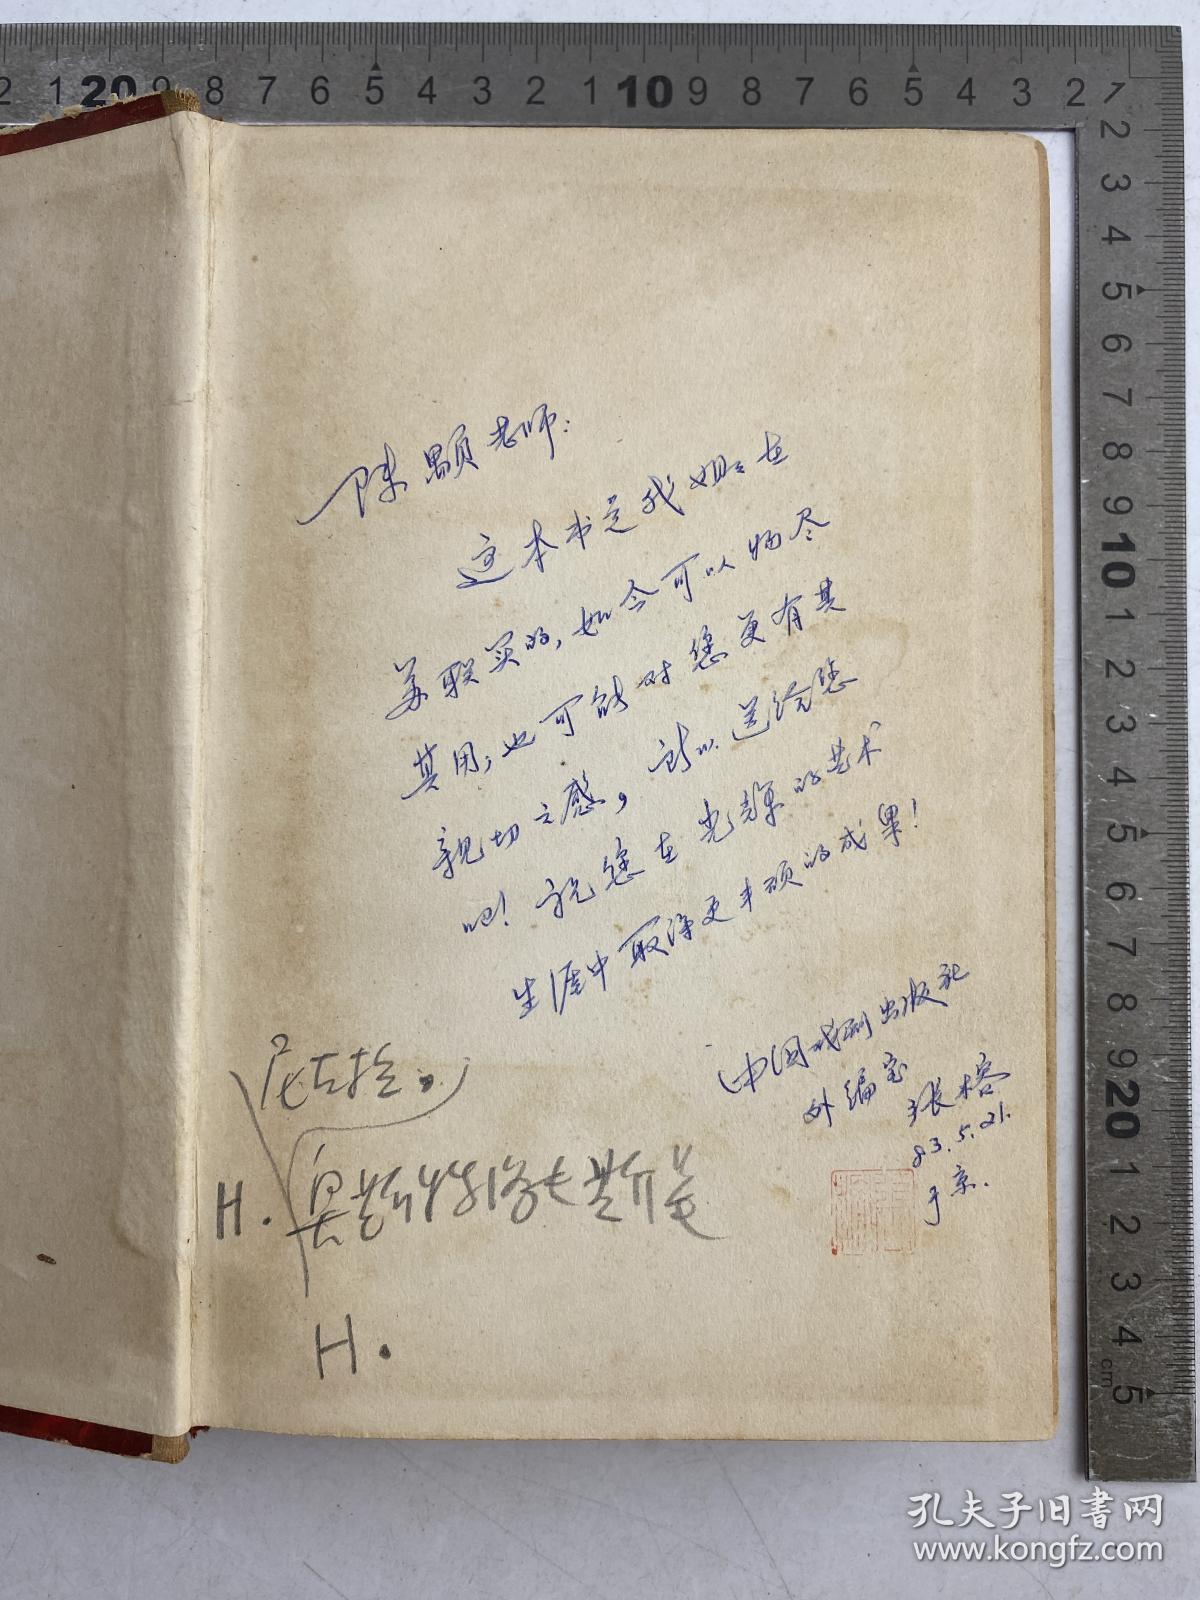 陈颙老师：
这本书是我姐姐在
苏联买的，如今可以物尽
其用；也可能对您更有其
亲切之感，所以送给您
吧！祝您在光辉的艺术
生涯中取得更丰硕的成果！
中国戏剧出版社
外编室
张榕
83.5.21.
于京.
H.
奥斯特洛夫斯基
H.
孔夫子旧书网
www.kongfz.com
2 1 20 9 8 7 6 5 4 3 2 1 10 9 8 7 6 5 4 3 2 1
2 3 4 5 6 7 8 9 10 1 2 3 4 5 6 7 8 9 20 1 2 3 4 cm 5